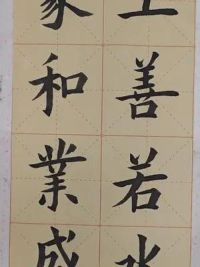 上善若水
家和業成